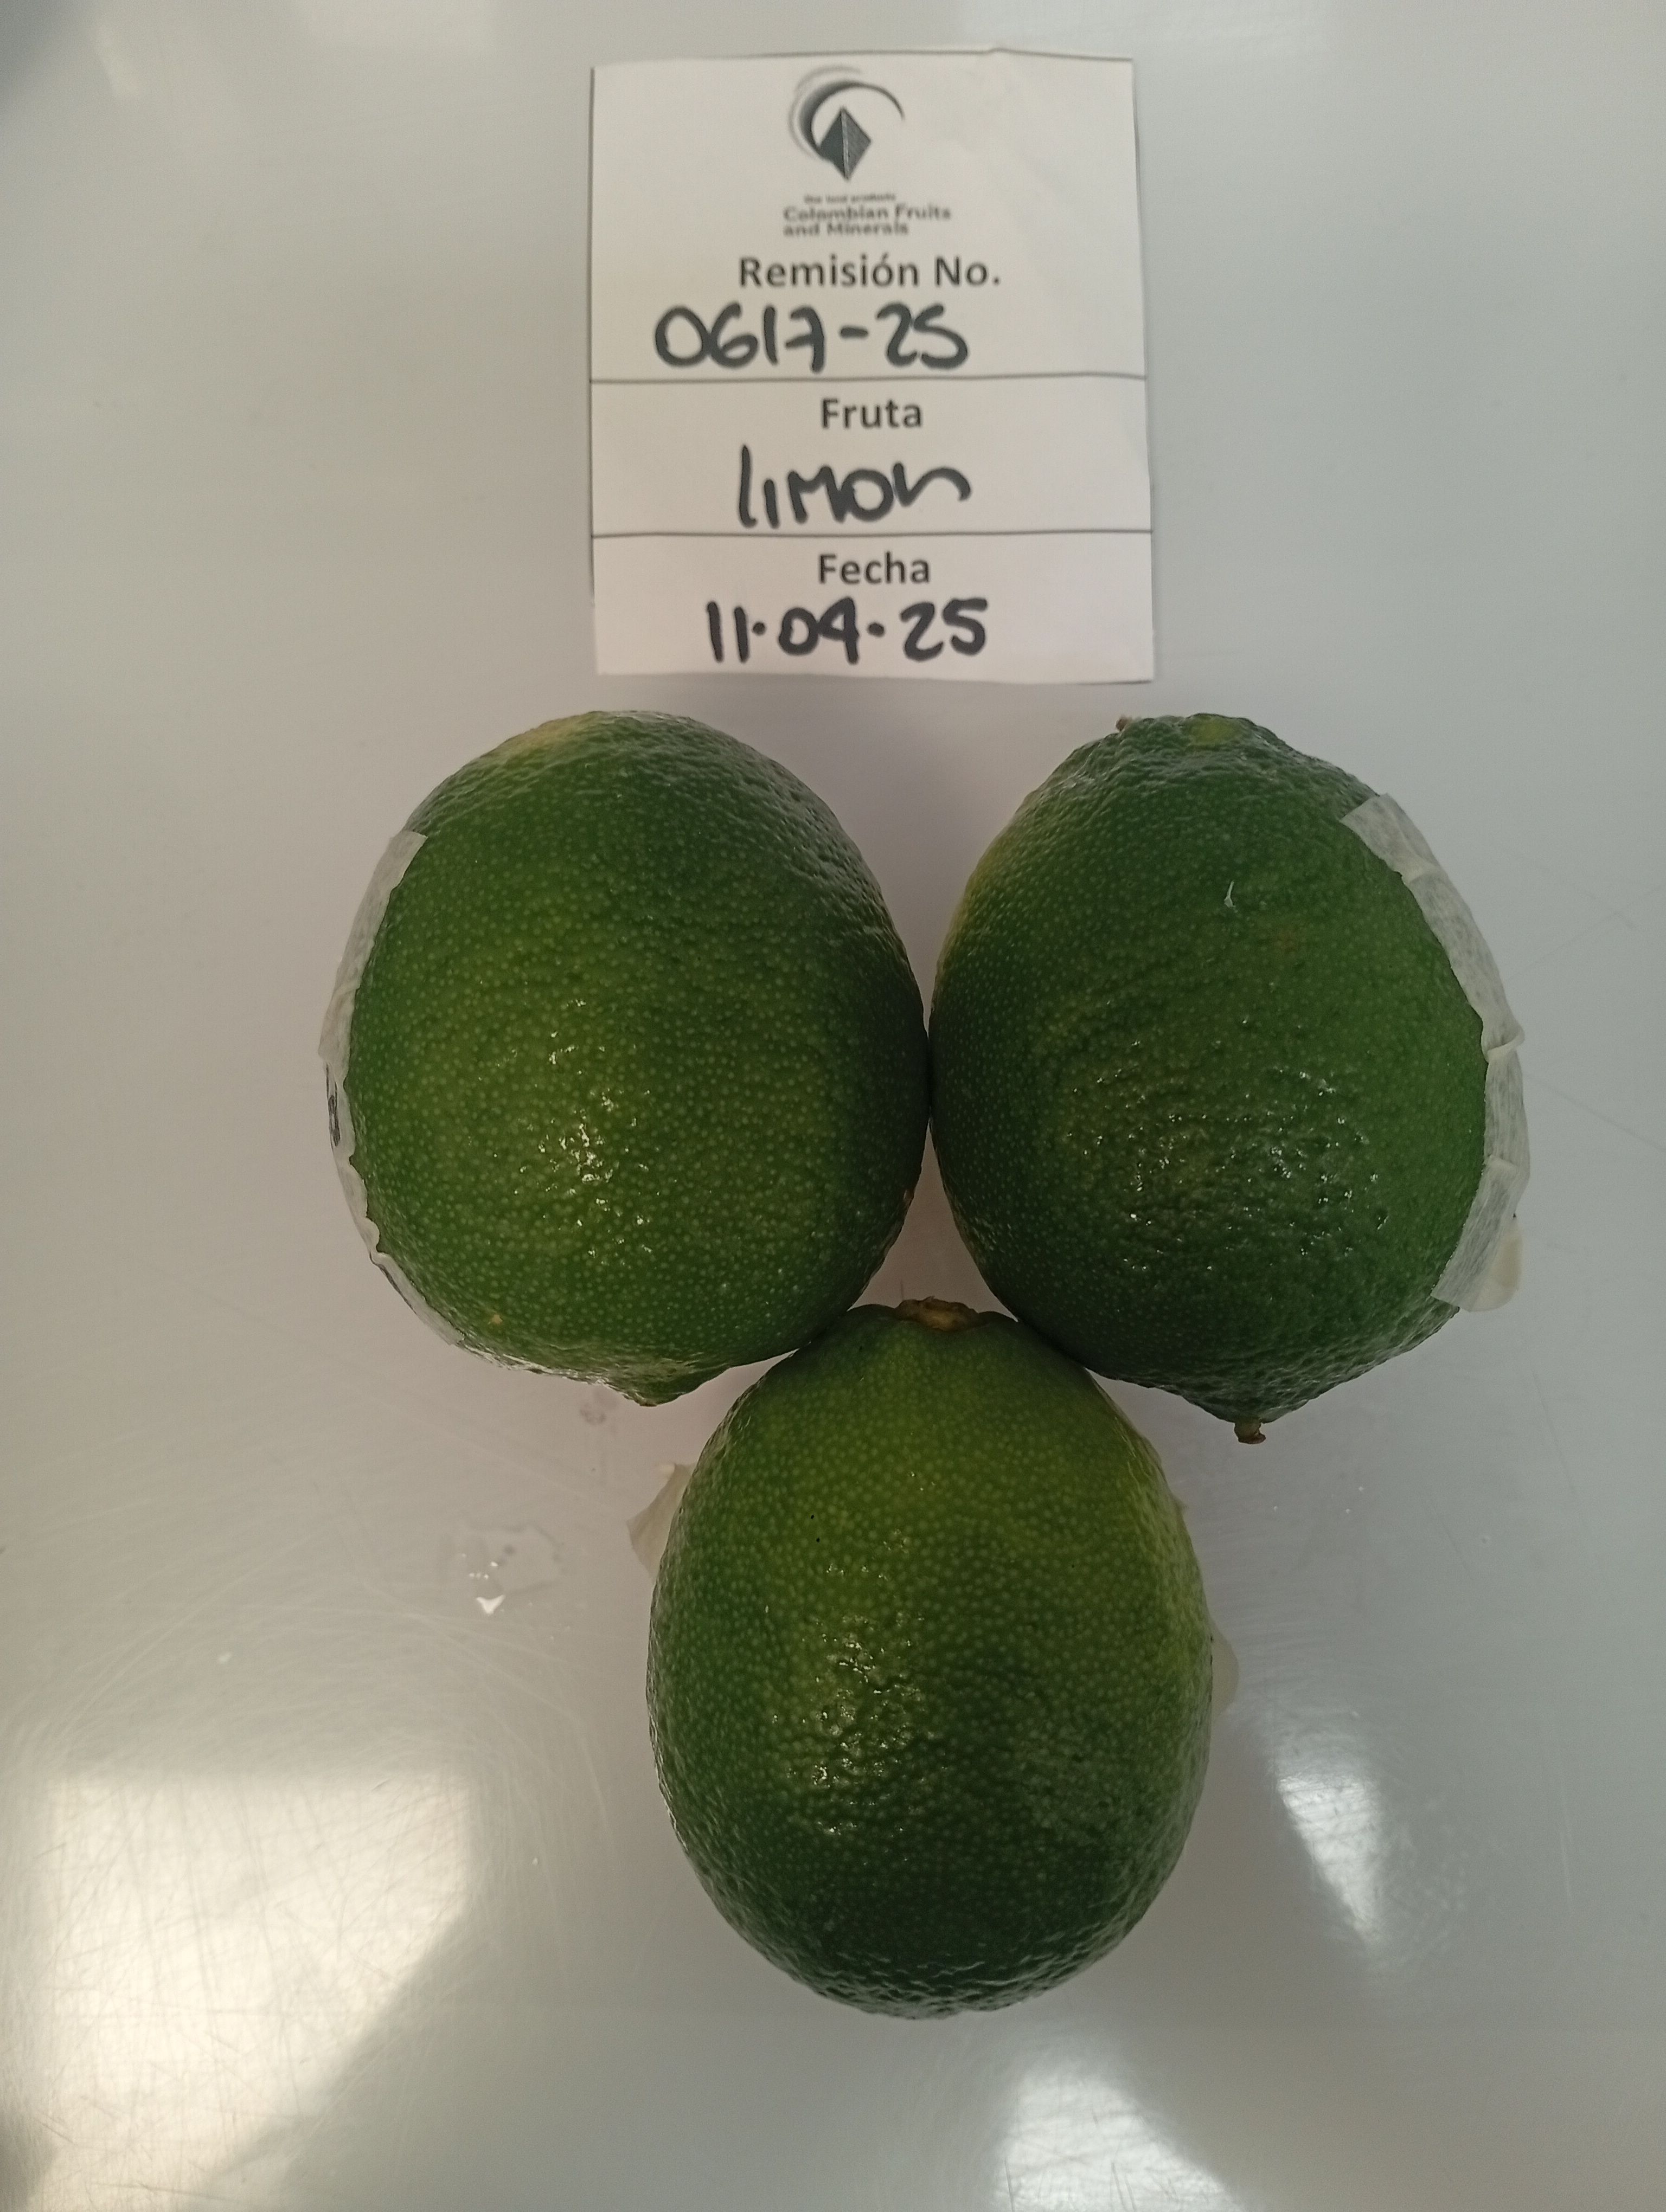 Colombian Fruits
and Minerals
Remisión No.
0617-25
Fruta
limon
Fecha
11.04.25